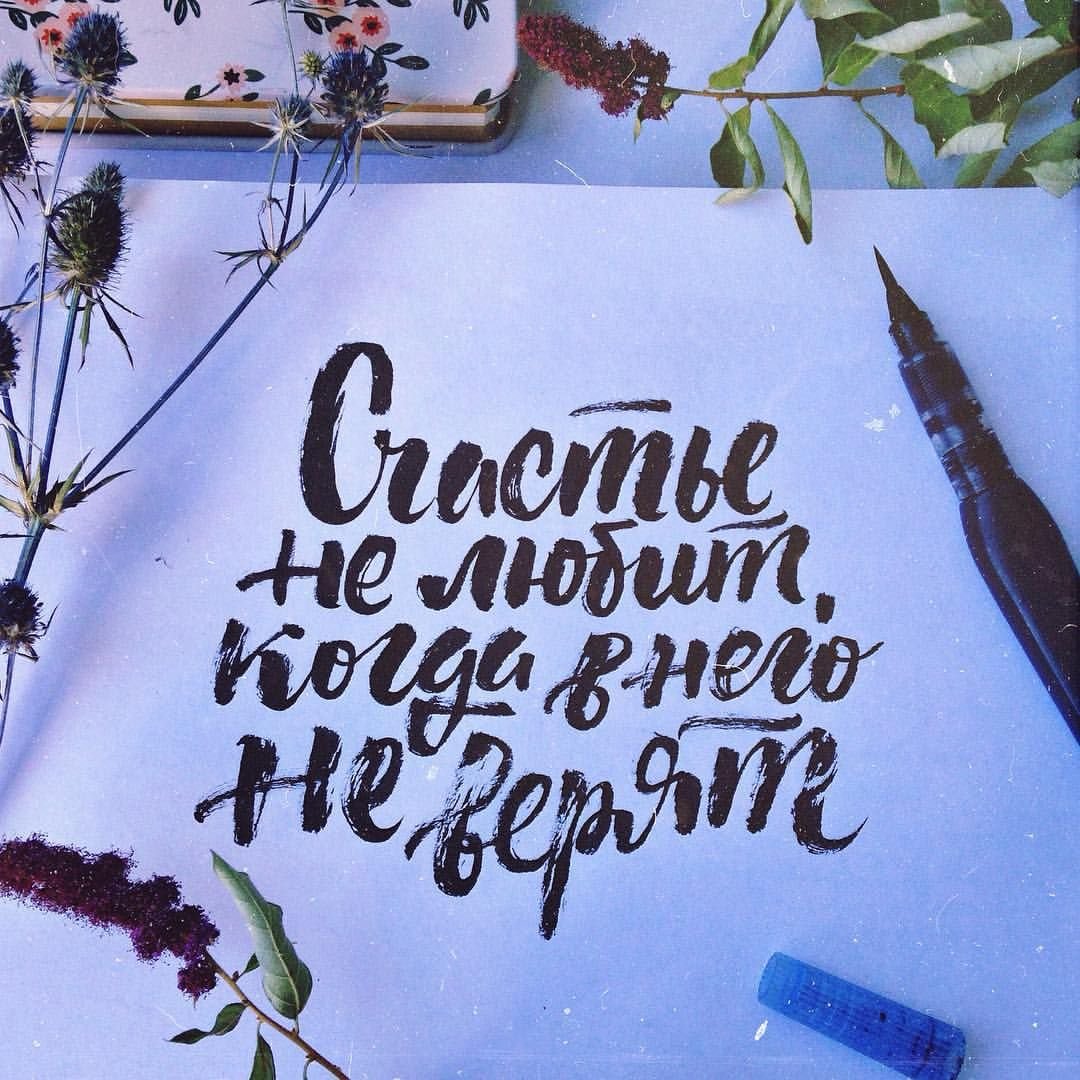 Счастье
не любит,
когда в него
не верят